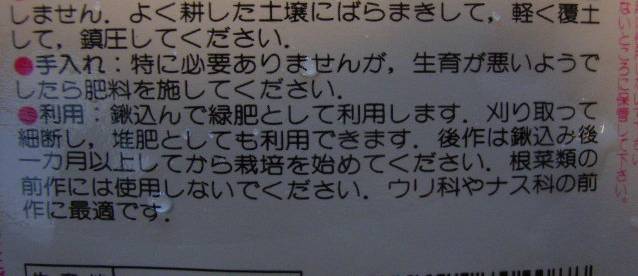 しません．よく耕した土壌にばらまきして，軽く覆土
して，鎮圧してください．
●手入れ：特に必要ありませんが，生育が悪いようで
したら肥料を施してください．
●利用：鍬込んで緑肥として利用します．刈り取って
細断し，堆肥としても利用できます．後作は鍬込み後
一カ月以上してから栽培を始めてください．根菜類の
前作には使用しないでください．ウリ科やナス科の前
作に最適です．
ないところに保管して下さい。